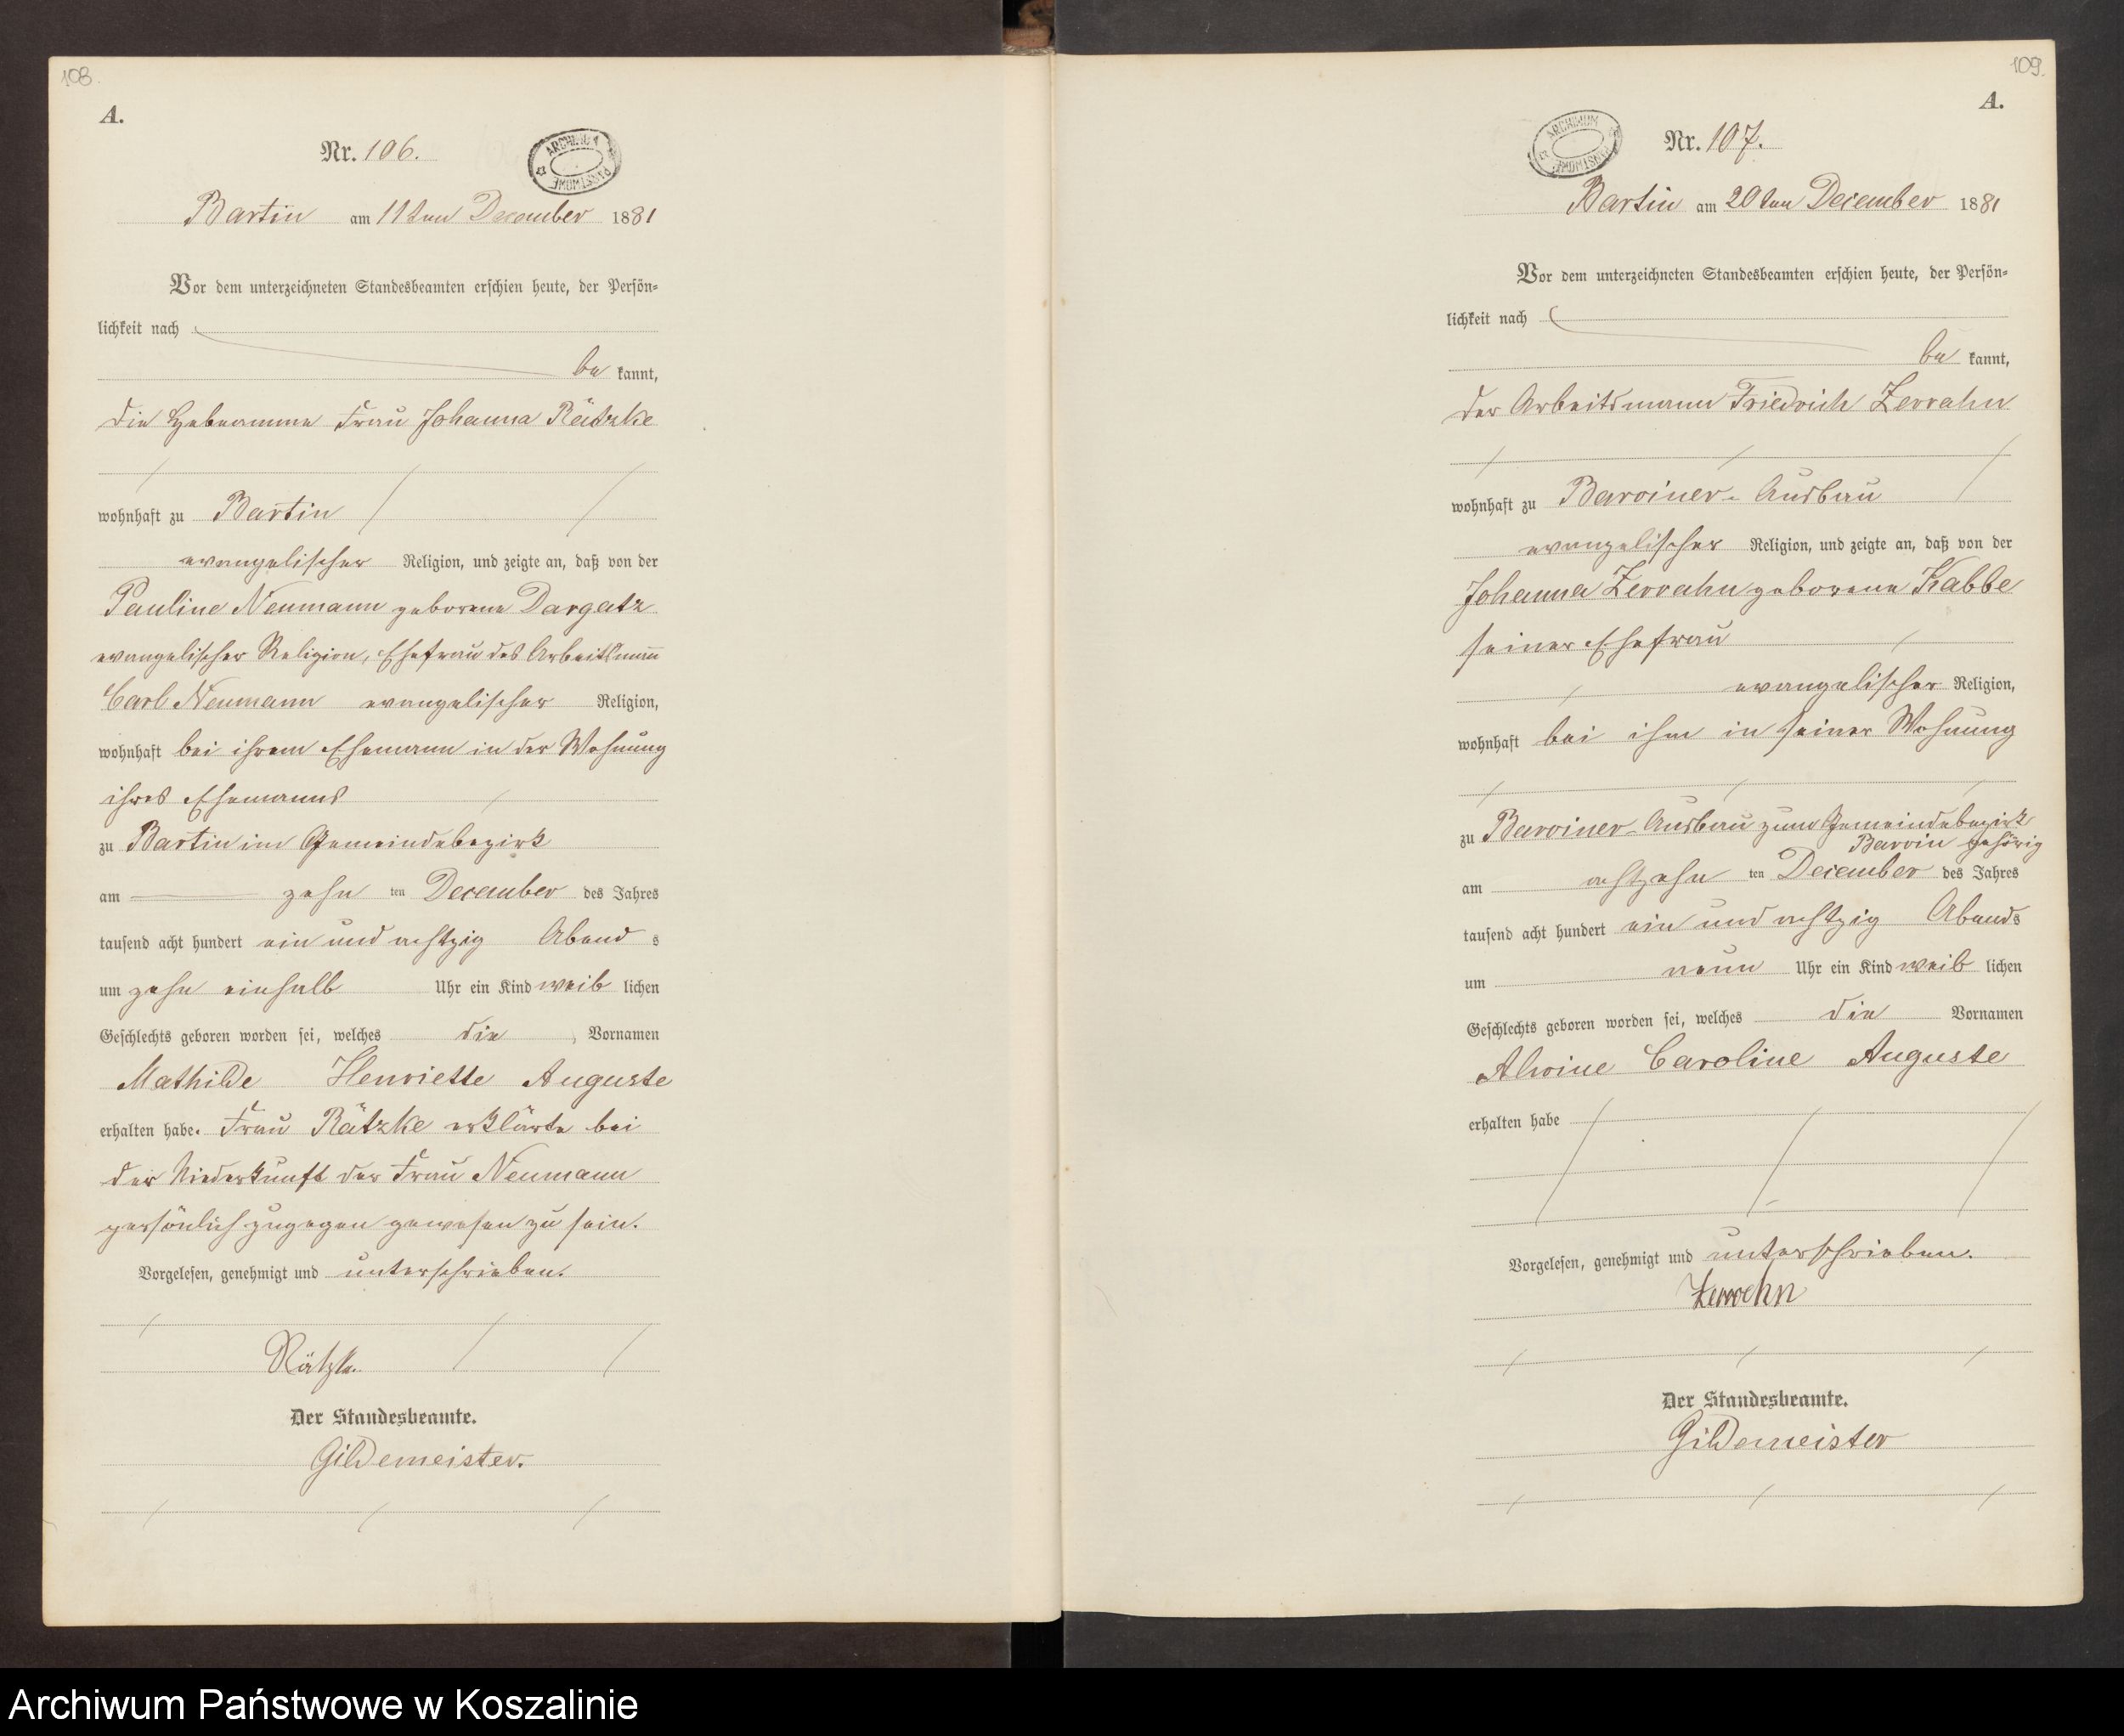 108.
A.
Nr. 106.
ARCHIWUM PAŃSTWOWE
Bartin am 11ten December 1881
Vor dem unterzeichneten Standesbeamten erschien heute, der Persön-
lichkeit nach
be kannt,
die Hebeamme Frau Johanna Rätzke
wohnhaft zu Bartin
evangelischer Religion, und zeigte an, daß von der
Pauline Neumann geborene Dargatz
evangelischer Religion, Ehefrau des Arbeitsmann
Carl Neumann evangelischer Religion,
wohnhaft bei ihrem Ehemann in der Wohnung
ihres Ehemanns
zu Bartin im Gemeindebezirk
am zehn ten December des Jahres
tausend acht hundert ein und achtzig Abend s
um zehn einhalb Uhr ein Kind weib lichen
Geschlechts geboren worden sei, welches die , Vornamen
Mathilde Henriette Auguste
erhalten habe. Frau Rätzke erklärte bei
der Niederkunft der Frau Neumann
persönlich zugegen gewesen zu sein.
Vorgelesen, genehmigt und unterschrieben.
Rätzke.
Der Standesbeamte.
Gildemeister.
109.
A.
ARCHIWUM PAŃSTWOWE
Nr. 107.
Bartin am 20ten December 1881
Vor dem unterzeichneten Standesbeamten erschien heute, der Persön-
lichkeit nach
be kannt,
der Arbeitsmann Friedrich Zerrahn
wohnhaft zu Barviner-Ausbau
evangelischer Religion, und zeigte an, daß von der
Johanna Zerrahn geborene Kabbe
seiner Ehefrau
evangelischer Religion,
wohnhaft bei ihm in seiner Wohnung
zu Barviner-Ausbau zum Gemeindebezirk
Barvin gehörig
am achtzehn ten December des Jahres
tausend acht hundert ein und achtzig Abends
um neun Uhr ein Kind weib lichen
Geschlechts geboren worden sei, welches die Vornamen
Alwine Caroline Auguste
erhalten habe
Vorgelesen, genehmigt und unterschrieben.
Zerrehn
Der Standesbeamte.
Gildemeister
Archiwum Państwowe w Koszalinie